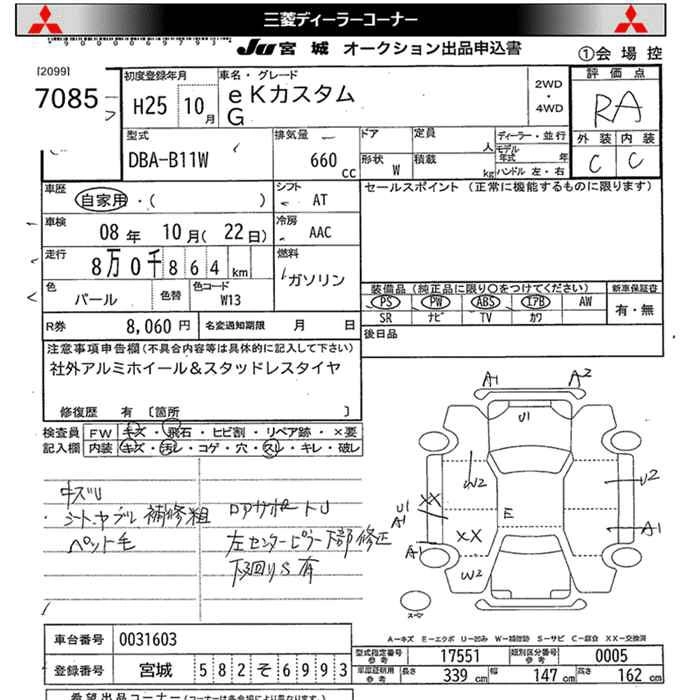 三菱ディーラーコーナー
JU宮城 オークション出品申込書
①会場控
[2099]
7085
初度登録年月
H25 10月
車名・グレード
eKカスタム
G
2WD・4WD
評価点
RA
外装 内装
C C
型式
DBA-B11W
排気量
660cc
ドア 定員 人
形状 W 積載 kg
ディーラー・並行
モデル年式 年
ハンドル 左・右
車歴
自家用・( )
シフト
AT
セールスポイント (正常に機能するものに限ります)
車検
08年 10月(22日)
冷房
AAC
走行
8万0千864km
燃料
ガソリン
色
パール
色替
色コード
W13
装備品(純正品に限り○をつけてください)
PS PW ABS エアB AW
SR ナビ TV カワ
新車保証書
有・無
R券 8,060円
名変通知期限 月 日
後日品
注意事項申告欄(不具合内容等は具体的に記入して下さい)
社外アルミホイール&スタッドレスタイヤ
修復歴 有 [箇所 ]
検査員記入欄
FW キズ・飛石・ヒビ割・リペア跡・×要
内装 キズ・汚レ・コゲ・穴・スレ・キレ・破レ
キズU
シートヤブレ補修粗
ペット毛
ロアサポートU
左センターピラー下部修正
下廻りS有
A1 A2
U1
W2
U2
XX
U1
A1
E
A1
XX
A1
W2
スペア
A-キズ E-エクボ U-凹み W-補修跡 S-サビ C-腐食 XX-交換済
車台番号 0031603
登録番号 宮城 582そ6993
型式指定番号 参考 17551
類別区分番号 参考 0005
車庫証明用 参考 長さ 339cm 幅 147cm 高さ 162cm
希望出品コーナー